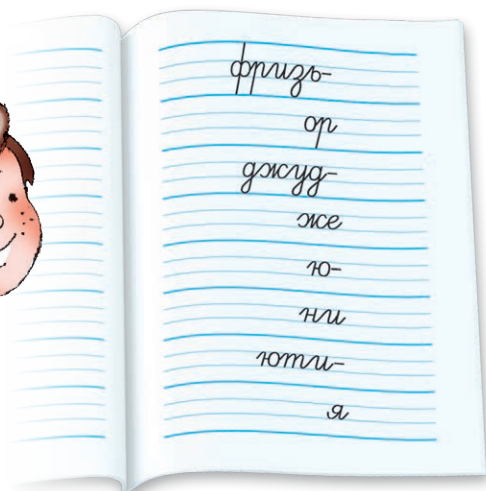 фризь-
ор
джуд-
же
ю-
ни
юти-
я